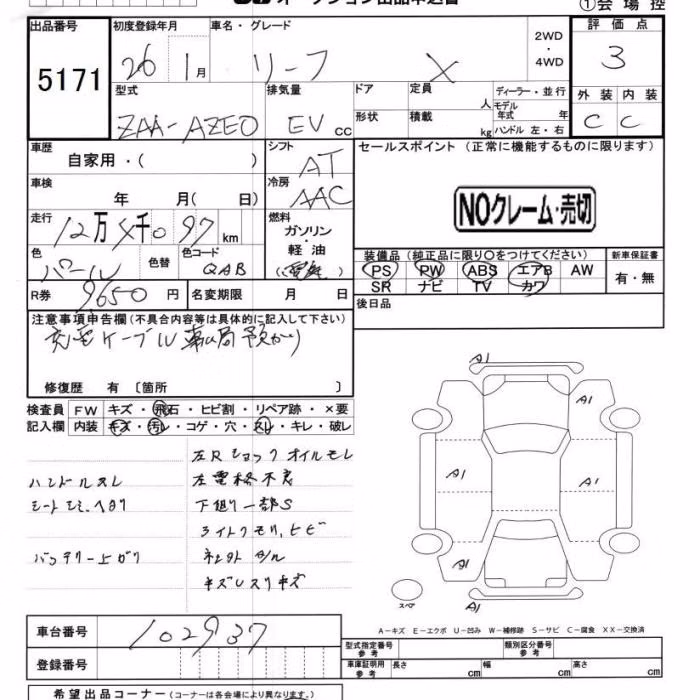 オークション出品申込書
①会場控
出品番号
5171
初度登録年月
26 1月
車名・グレード
リーフ X
2WD
・
4WD
評価点
3
外装 内装
C C
型式
ZAA-AZE0
排気量
EV cc
ドア
形状
定員
人
積載
kg
ディーラー・並行
モデル年式 年
ハンドル 左・右
車歴
自家用・( )
シフト
AT
セールスポイント (正常に機能するものに限ります)
NOクレーム・売切
車検
年 月( 日)
冷房
AAC
走行
12万4千097km
燃料
ガソリン
・
軽油
色
パール
色替
色コード
QAB
装備品 (純正品に限り○をつけてください)
PS PW ABS エアB AW
SR ナビ TV カワ
新車保証書
有・無
R券
9650円
名変期限 月 日
後日品
注意事項申告欄(不具合内容等は具体的に記入して下さい)
充電ケーブル 預かり
修復歴 有 〔箇所 〕
検査員 FW キズ・飛石・ヒビ割・リペア跡・×要
記入欄 内装 キズ・汚レ・コゲ・穴・スレ・キレ・破レ
左Rショックオイルモレ
ハンドルスレ
左電格不良
シートシミ、ヘタリ
下廻り一部S
ライトクモリ、ヒビ
バッテリー上ガリ
キズ
A1
A1
A1
A1
A1
A1
スペア
A-キズ E-エクボ U-凹み W-補修跡 S-サビ C-腐食 XX-交換済
車台番号
102937
登録番号
型式指定番号
参考
類別区分番号
参考
車庫証明用
参考
長さ cm 幅 cm 高さ cm
希望出品コーナー(コーナーは各会場により異なります。)